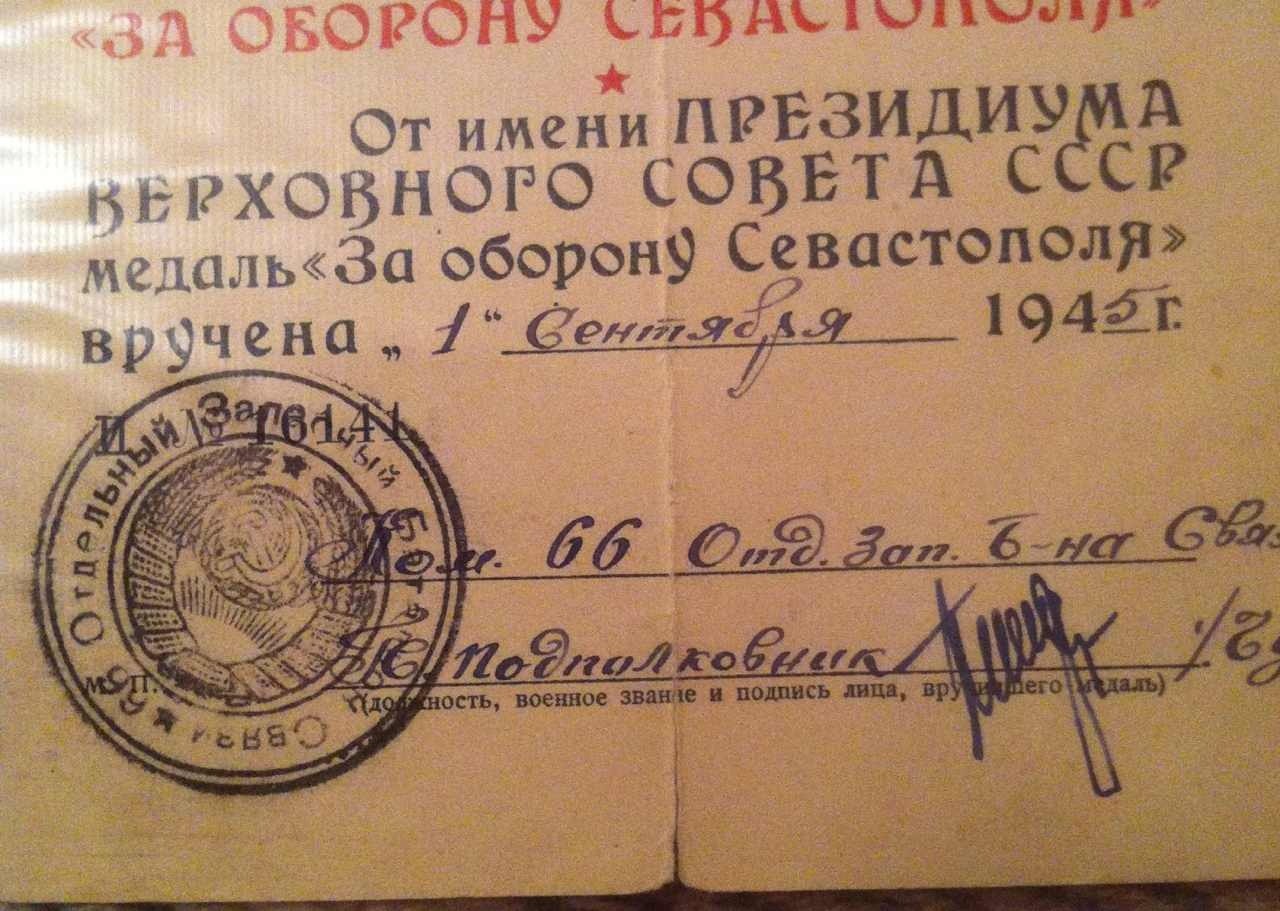 «ЗА ОБОРОНУ СЕВАСТОПОЛЯ»
От имени ПРЕЗИДИУМА
ВЕРХОВНОГО СОВЕТА СССР
медаль «За оборону Севастополя»
вручена „1“ Сентября 1945 г.
И № 16141
Ком. 66 Отд. Зап. Б-на Связ
Подполковник
(должность, военное звание и подпись лица, вручившего медаль)
м. п.
66 Отдельный Запасный Бата Связи